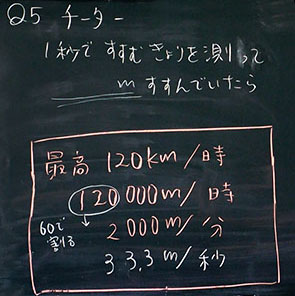 Q5 チーター
1秒で すすむ きょりを 測って
m すすんでいたら
最高 120km/時
120000m/時
60で
割る
2000m/分
33.3m/秒